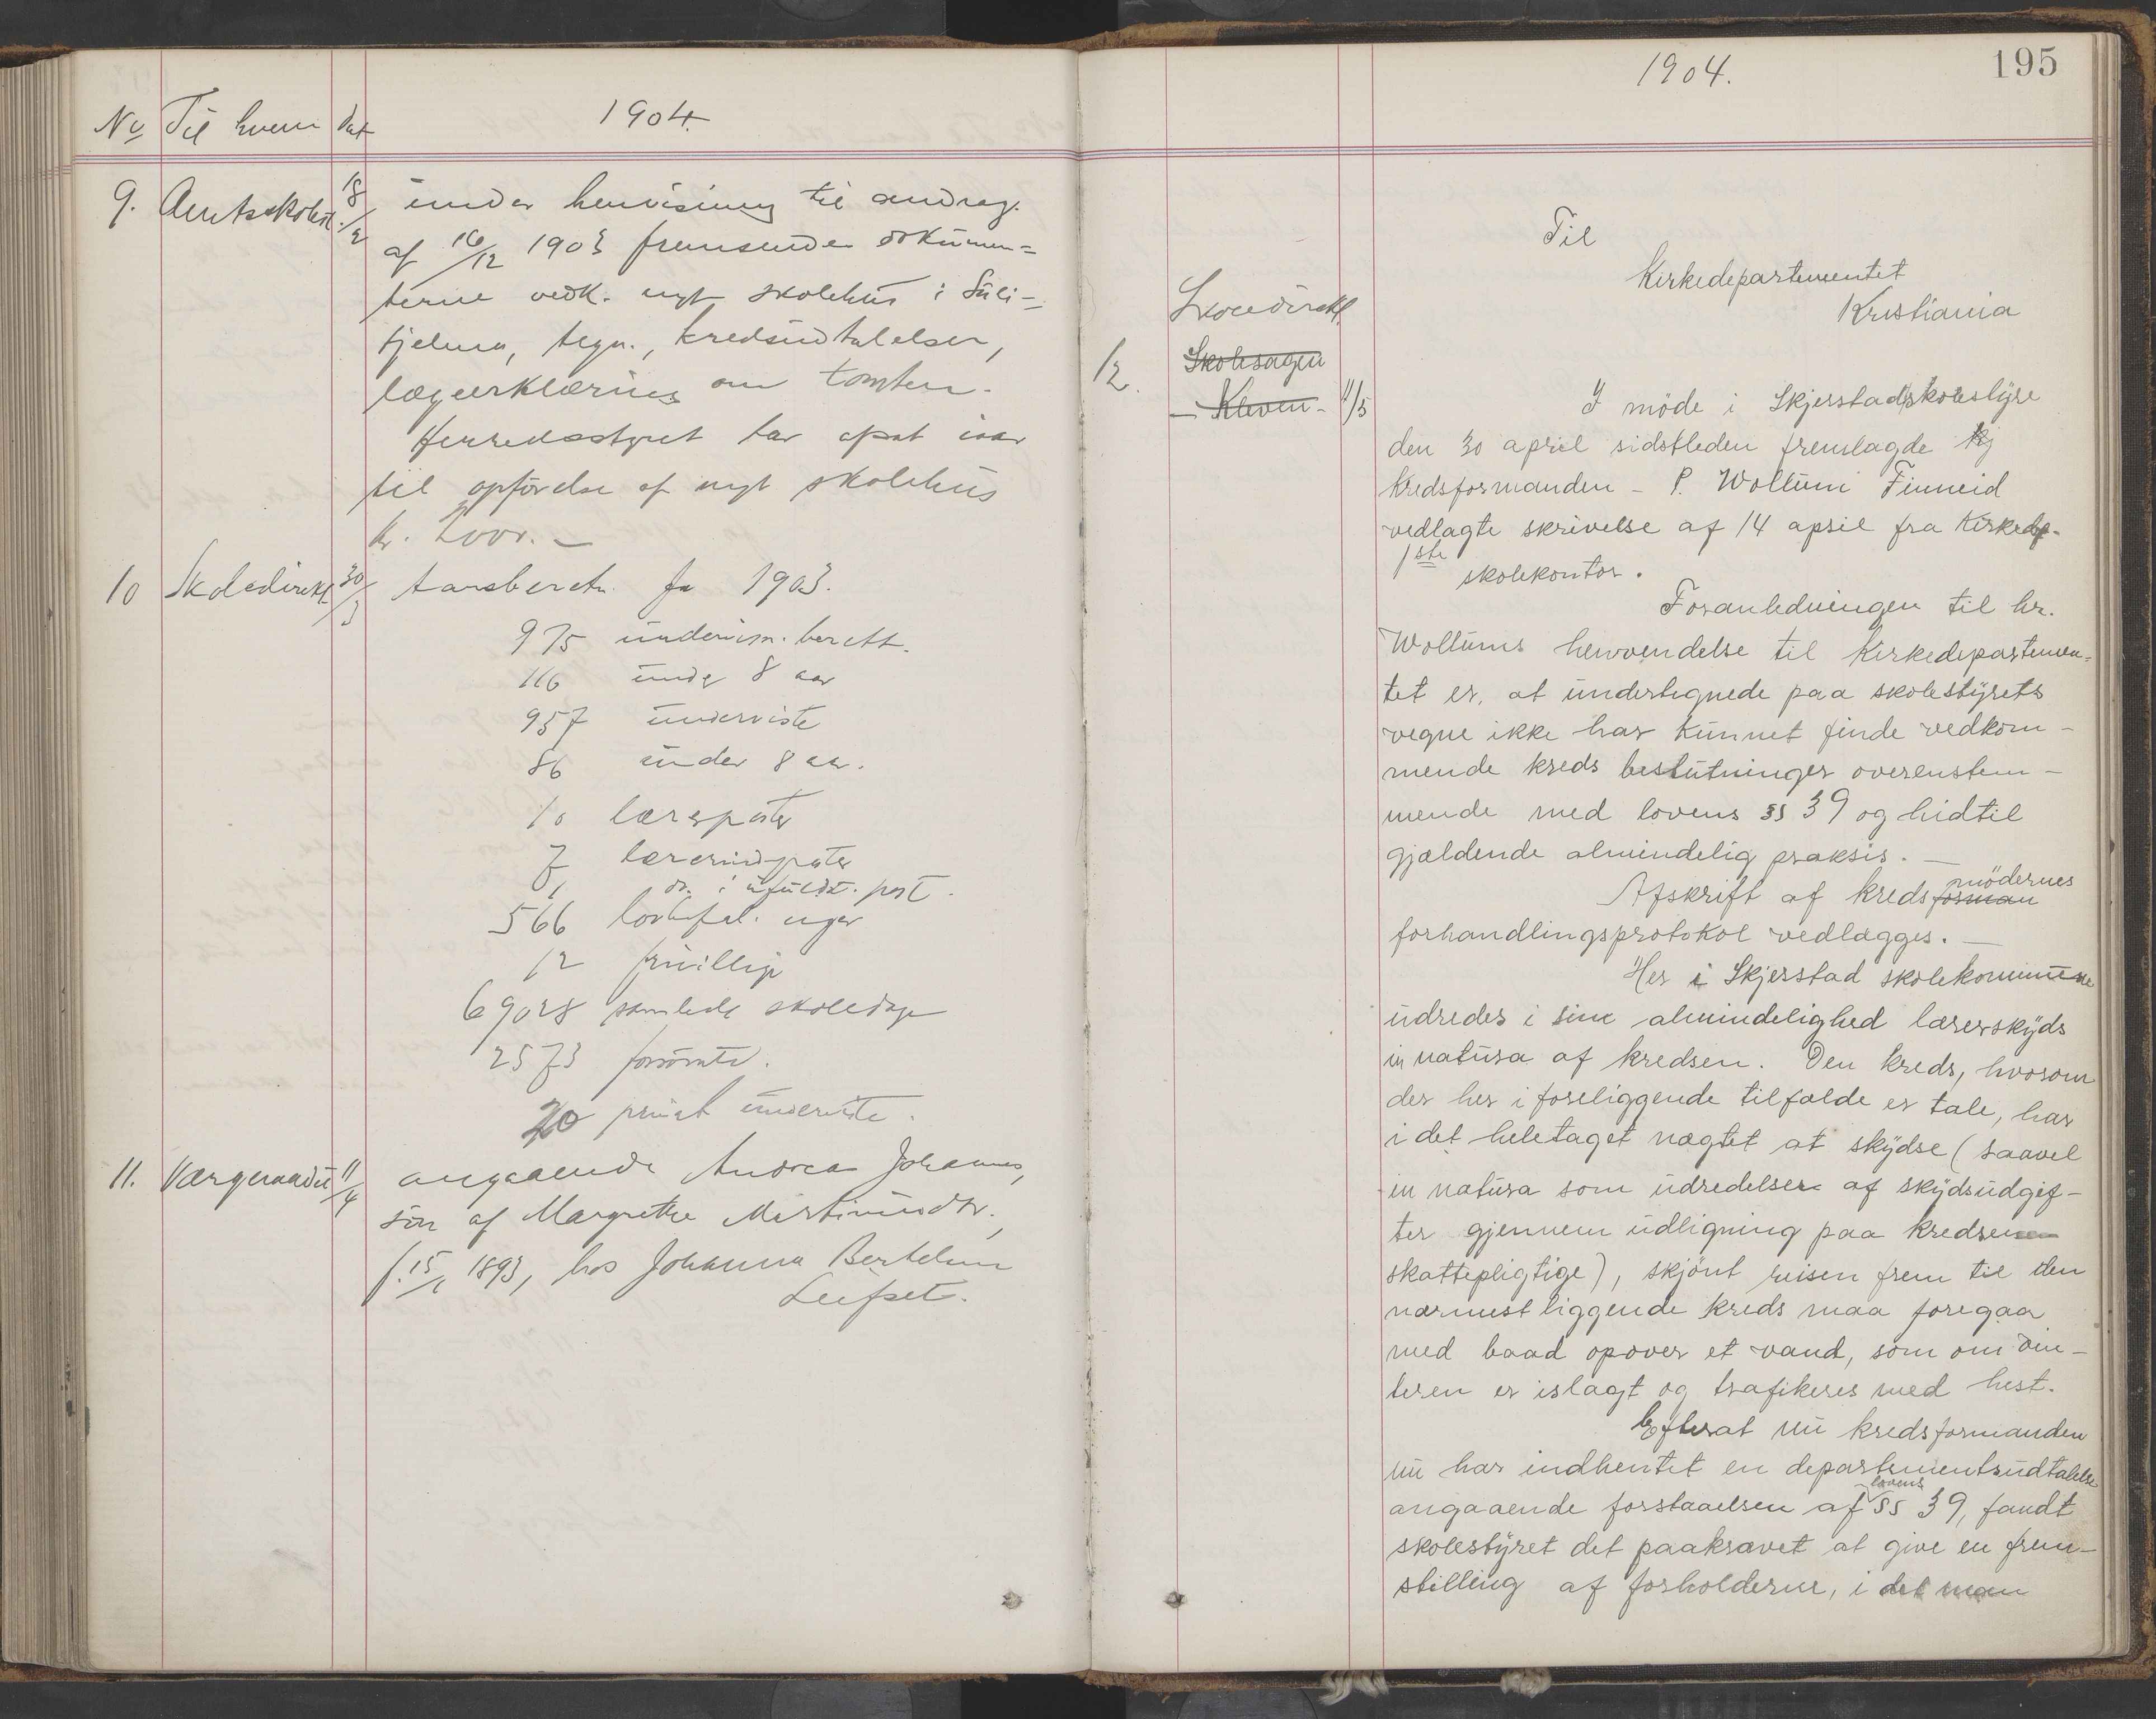 1904.
No Til hvem Dat
9. Amtsskoledir. 18/2 under henvisning til andrag.
af 16/12 1903 fremsendes dokumen=
terne vedk. nyt skolehus i Suli-
tjelma, tegn., kredsudtalelser,
lægeerklæring om tomten.
Herredsstyret har opsat iaar
til opførelse af nyt skolehus
kr. 2000. —
10 Skoledirekt. 30/3 Aarsberetn. for 1903.
975 undervisn. berett.
116 under 8 aar
957 underviste
86 under 8 aar.
10 lærerposter
7 lærerindeposter
1 do. i ufuldst. post.
566 lovbefal. uger
12 frivillige
69028 samlede skoledage
2573 forsömte.
20 privat underviste.
11. Værgeraadet 11/4 angaaende Andreas Johannes,
sön af Margrethe Martinusdtr.,
f. 15/1 1893, hos Johanna Bertelsen
Leifset.
1904.
195
Til
Kirkedepartementet
Kristiania
Skoledirekt.
12. Skolesagen
- Kleven - 11/5
I möde i Skjerstad skolestyre
den 30 april sidstleden fremlagde kj
kredsformanden - P. Wollum Finneid
vedlagte skrivelse af 14 april fra Kirkedp.
1ste skolekontor.
Foranledningen til hr.
Wollums henvendelse til Kirkedepartemen=
tet er, at undertegnede paa skolestyrets
vegne ikke har kunnet finde vedkom-
mende kreds beslutninger overenstem-
mende med lovens §§ 39 og hidtil
gjældende almindelig praksis. —
mödernes
Afskrift af kredsforman
forhandlingsprotokol vedlægges. —
Her i Skjerstad skolekommune
udredes i sin almindelighed lærerskyds
in natura af kredsen. Den kreds, hvorom
der her i foreliggende tilfælde er tale, har
i det heletaget nægtet at skydse (saavel
in natura som udredelser af skydsudgif-
ter gjennem udligning paa kredsens
skattepligtige), skjönt reisen frem til den
nærmest liggende kreds maa foregaa
med baad opover et vand, som om vin-
teren er islagt og trafikeres med hest.
Efterat nu kredsformanden
nu har indhentet en departementsudtalelse
lovens
angaaende forstaaelsen af §§ 39, fandt
skolestyret det paakrævet at give en frem-
stilling af forholderne, i det man